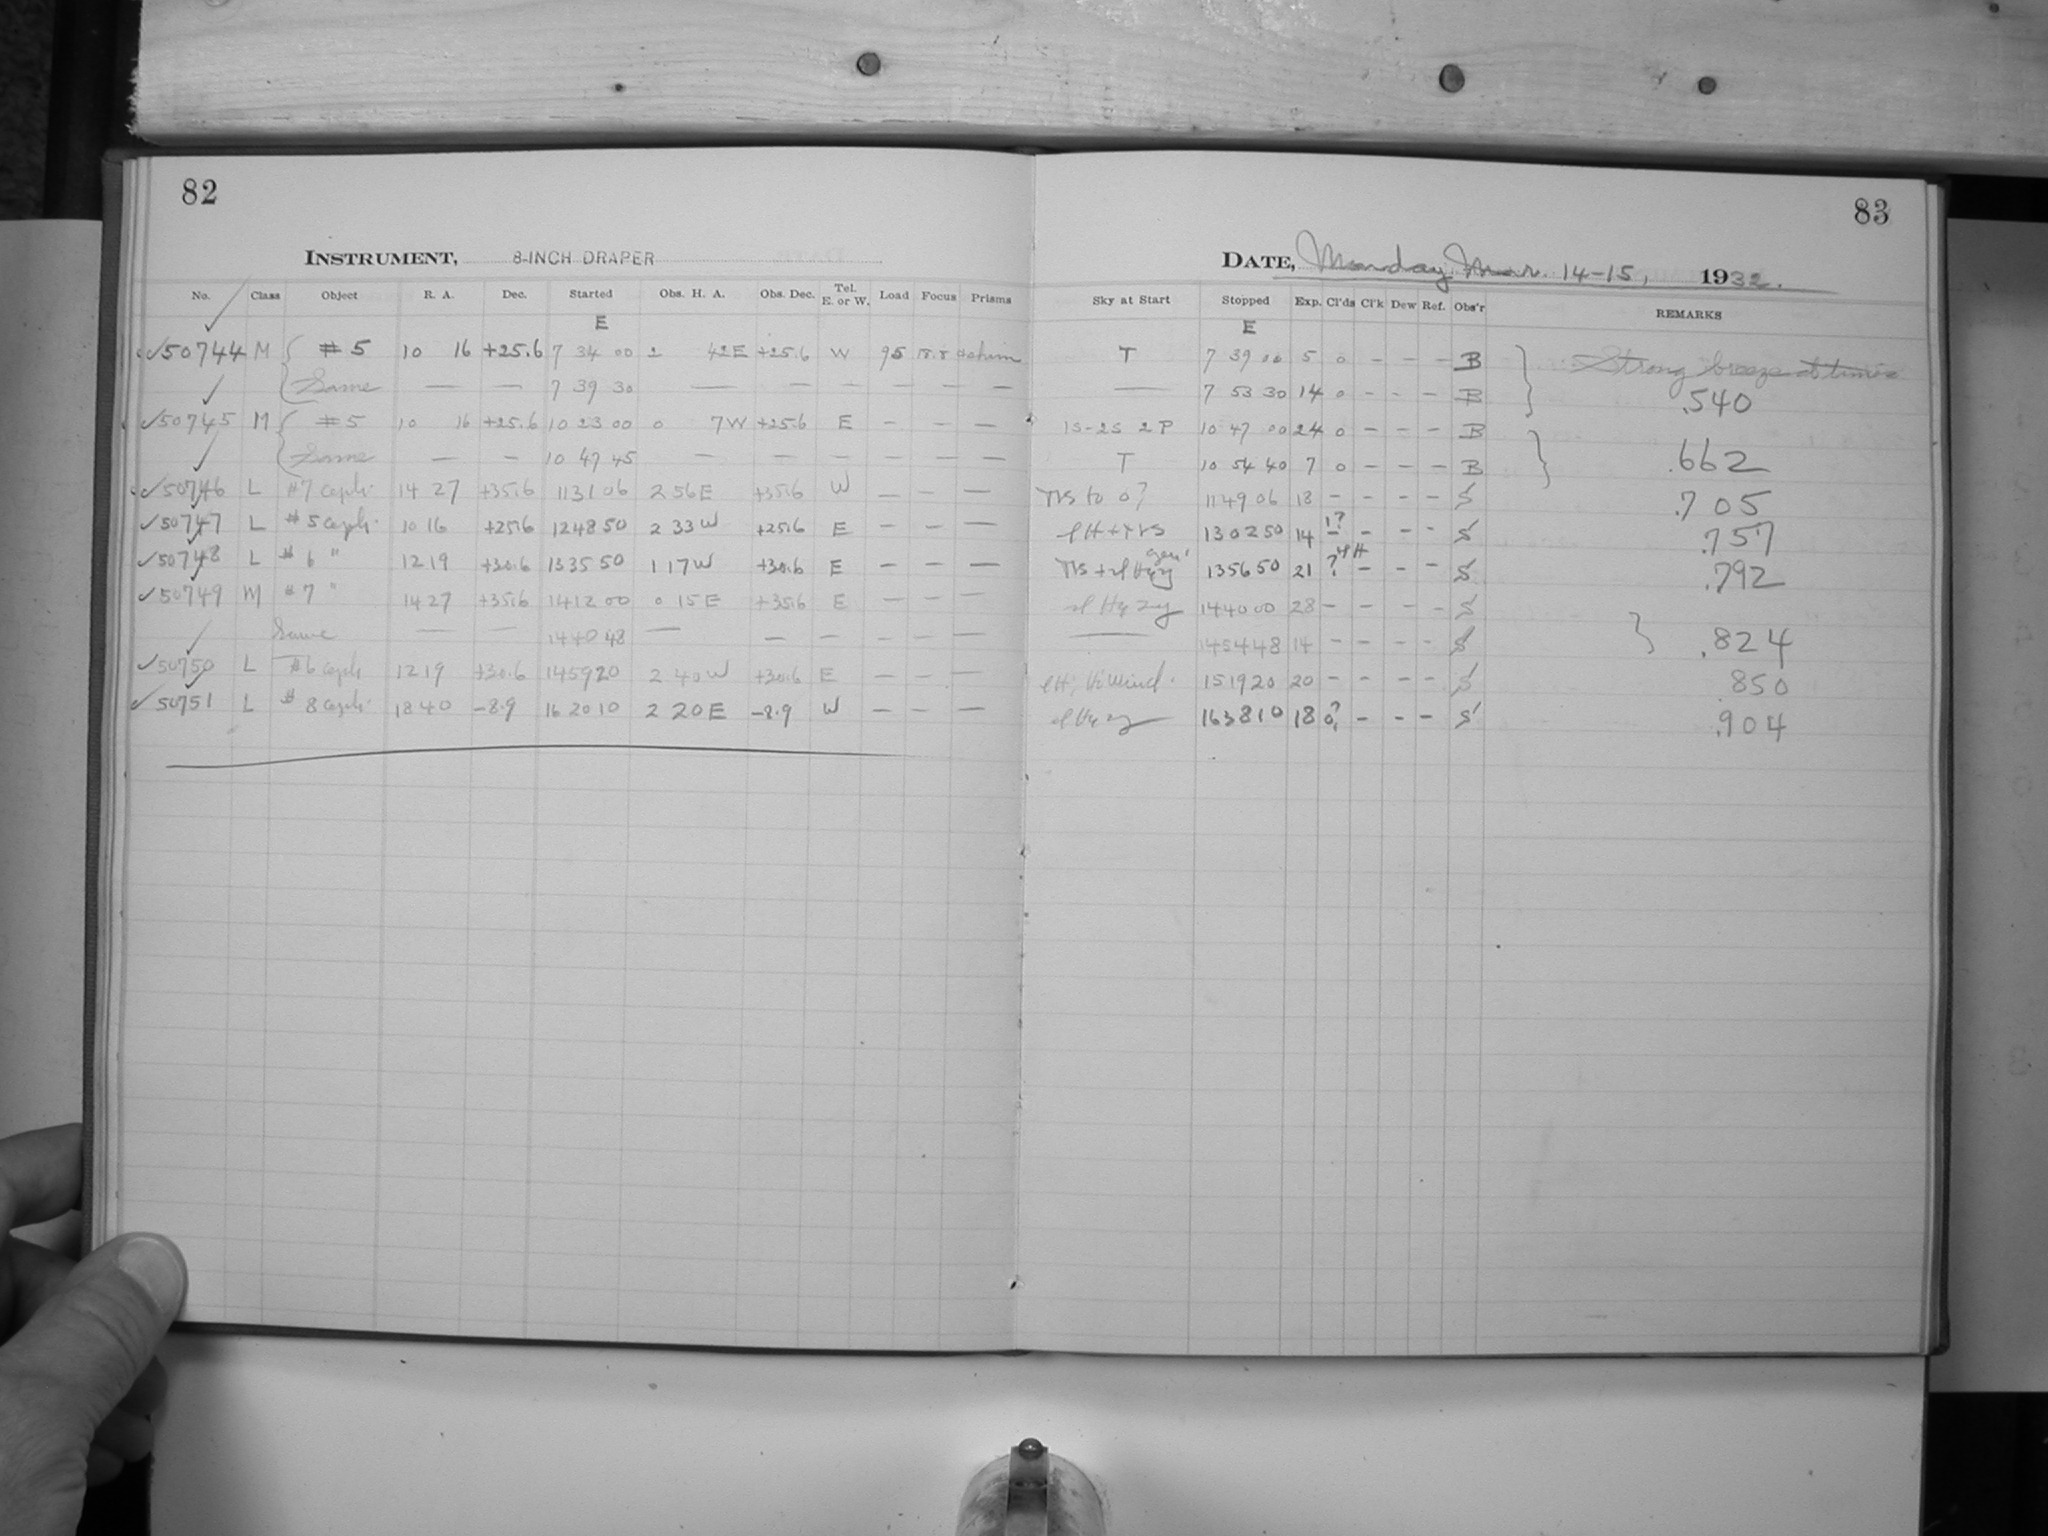 82
INSTRUMENT, 8-INCH DRAPER
No. Class Object R. A. Dec. Started Obs. H. A. Obs. Dec. Tel. E. or W. Load Focus Prisms
E
✓50744 M { # 5 10 16 +25.6 7 34 00 2 42E +25.6 W 95
Same — — 7 39 30 — — — — — —
✓50745 M { # 5 10 16 +25.6 10 23 00 0 7W +25.6 E — — —
Same — — 10 47 45 — — — — — —
✓50746 L #7 ceph. 14 27 +35.6 11 31 06 2 56E +35.6 W — — —
✓50747 L #5 ceph. 10 16 +25.6 12 48 50 2 33W +25.6 E — — —
✓50748 L # 6 " 12 19 +30.6 13 35 50 1 17W +30.6 E — — —
✓50749 M #7 " 14 27 +35.6 14 12 00 0 15E +35.6 E — — —
Same — — 14 40 48 — — — — — —
✓50750 L #6 ceph 12 19 +30.6 14 59 20 2 40W +30.6 E — — —
✓50751 L # 8 ceph. 18 40 -8.9 16 20 10 2 20E -8.9 W — — —
83
DATE, Monday Mar. 14-15, 1932.
Sky at Start Stopped Exp. Cl'ds Cl'k Dew Ref. Obs'r REMARKS
E
T 7 39 00 5 0 - - - B } Strong breeze at times
— 7 53 30 14 0 - - - B .540
1S-2S 2P 10 47 00 24 0 - - - B
T 10 54 40 7 0 - - - B } .662
to 0? 11 49 06 18 - - - - S .705
13 02 50 14 1? - - - S .757
13 56 50 21 ? - - - S .792
14 40 00 28 - - - - S
— 14 54 48 14 - - - - S } .824
15 19 20 20 - - - - S .850
16 38 10 18 0? - - - S .904